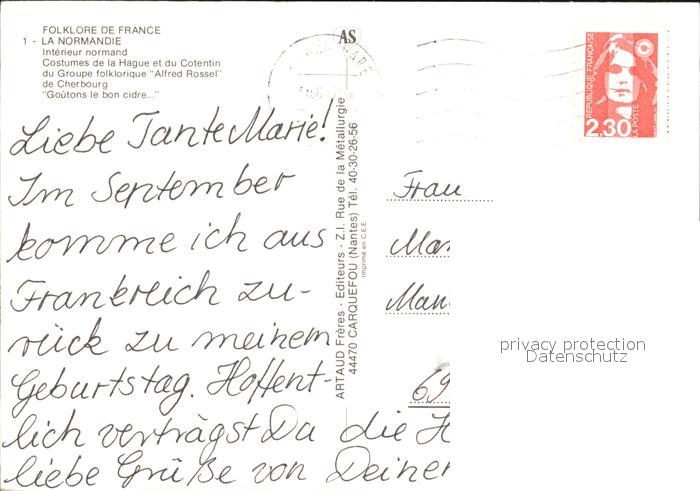 FOLKLORE DE FRANCE
1 - LA NORMANDIE
Intérieur normand
Costumes de la Hague et du Cotentin
du Groupe folklorique "Alfred Rossel"
de Cherbourg
"Goûtons le bon cidre..."
Liebe Tante Marie!
Im September
komme ich aus
Frankreich zu-
rück zu meinem
Geburtstag. Hoffent-
lich verträgst Du die H
liebe Grüße von Deiner
AS
ARTAUD Frères - Editeurs - Z.I. Rue de la Métallurgie
44470 CARQUEFOU (Nantes) Tél. 40-30-26-56
Imprimé en C.E.E.
REPUBLIQUE FRANÇAISE
2.30
LA POSTE
Frau
Mar
Man
69
privacy protection
Datenschutz